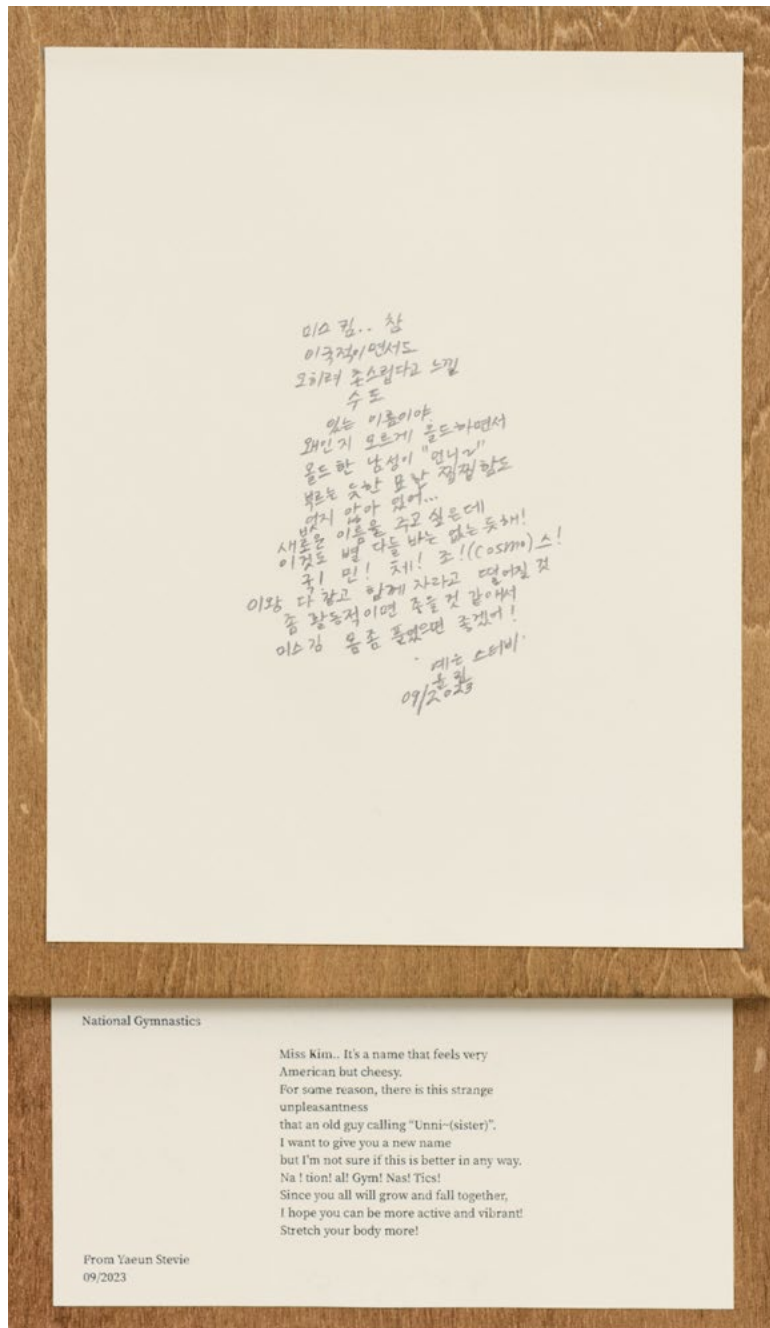 미스킴.. 참
이국적이면서도
오히려 촌스럽다고 느낄
수도
있는 이름이야.
왜인지 모르게 올드하면서
올드한 남성이 "언니~"
부르는 듯한 묘한 찝찝함도
벗지 않아 있어...
새로운 이름을 주고 싶은데
이것도 별 다를 바는 없는 듯해!
국! 민! 체! 조!(Cosmo)스!
이왕 다 같고 함께 자라고 떨어질 것
좀 활동적이면 좋을 것 같애서
미스김 몸 좀 풀었으면 좋겠어!
예은 스티비
09/2023
National Gymnastics
Miss Kim.. It's a name that feels very
American but cheesy.
For some reason, there is this strange
unpleasantness
that an old guy calling "Unni~(sister)".
I want to give you a new name
but I'm not sure if this is better in any way.
Na ! tion! al! Gym! Nas! Tics!
Since you all will grow and fall together,
I hope you can be more active and vibrant!
Stretch your body more!
From Yaeun Stevie
09/2023